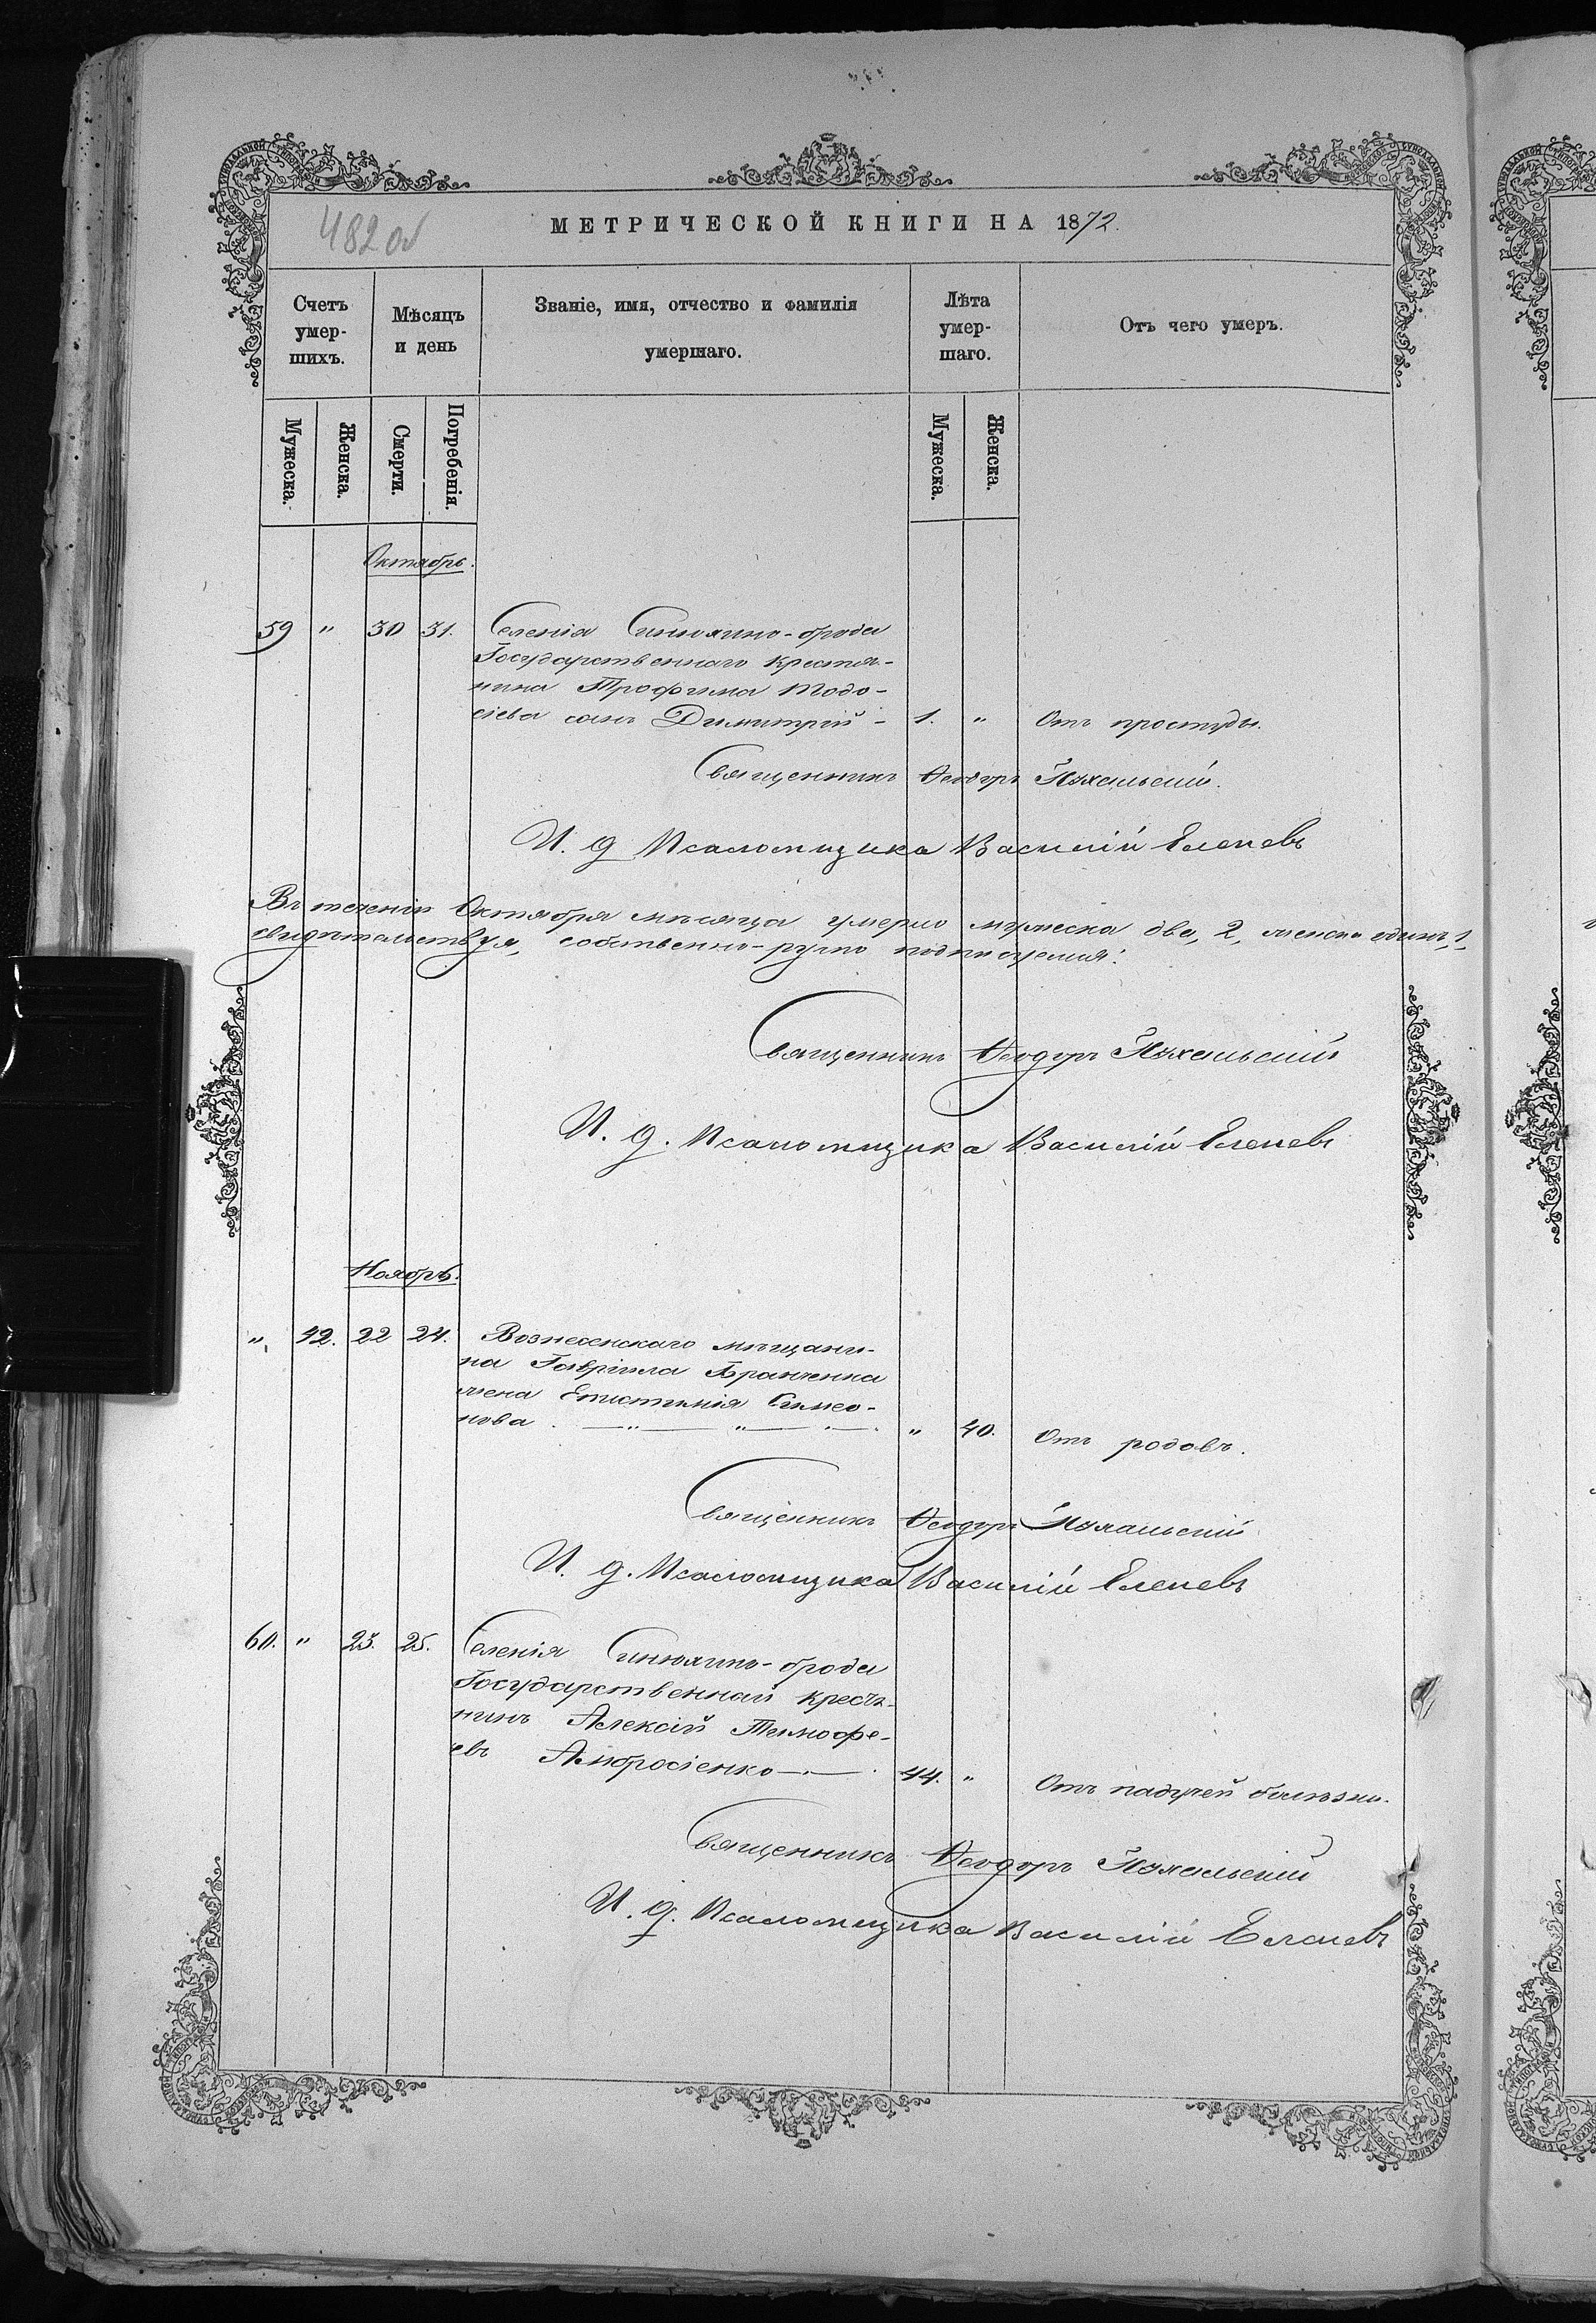 482 об
МЕТРИЧЕСКОЙ КНИГИ НА 1872.
Счетъ умер-шихъ.
Мѣсяцъ и день
Званіе, имя, отчество и фамилія умершаго.
Лѣта умер-шаго.
Отъ чего умеръ.
Мужеска.
Женска.
Смерти.
Погребенія.
Мужеска.
Женска.
Октябрь.
59 " 30 31. Селенія Синюхино-брода
Государственнаго крестья-
нина Трофима Тодо-
сіева сынъ Димитрій - 1. " Отъ простуды.
Священникъ Ѳеодоръ
И. д Псаломщика Василій
Въ теченіи Октября мѣсяца умерло мужеска два, 2, женска одинъ, 1,
свидѣтельствуя, собственно-ручно подписуемся:
Священникъ Ѳеодоръ
И. д. Псаломщика Василій
Ноябрь.
" 42. 22 24. Вознесенскаго мѣщани-
на Гавріила
жена Епистимія Симео-
нова. " 40. Отъ родовъ.
Священникъ Ѳеодоръ
И. д. Псаломщика Василій
60. " 23. 25. Селенія Синюхино-брода
Государственный крестья-
нинъ Алексій Тимофе-
евъ Амбросіенко 44. " Отъ падучей болѣзни.
Священникъ Ѳеодоръ
И. д. Псаломщика Василій